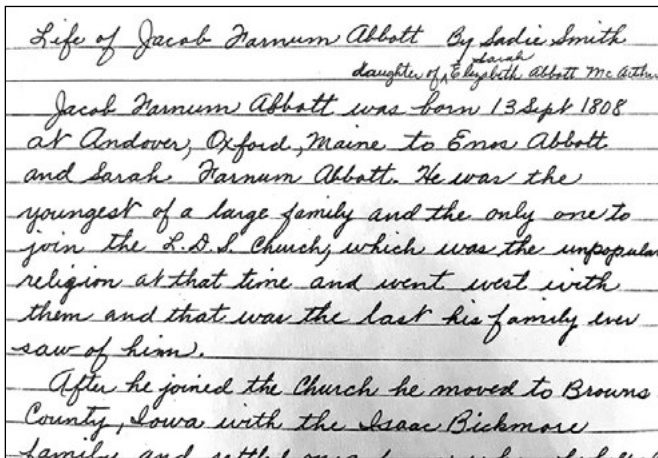 Life of Jacob Farnum Abbott By Sadie Smith
Sarah
daughter of ^ Elizabeth Abbott McArthur
Jacob Farnum Abbott was born 13 Sept 1808
at Andover, Oxford, Maine to Enos Abbott
and Sarah Farnum Abbott. He was the
youngest of a large family and the only one to
join the L.D.S. Church, which was the unpopular
religion at that time and went west with
them and that was the last his family ever
saw of him.
After he joined the Church he moved to Browns
County, Iowa with the Isaac Bickmore
family and settled on a